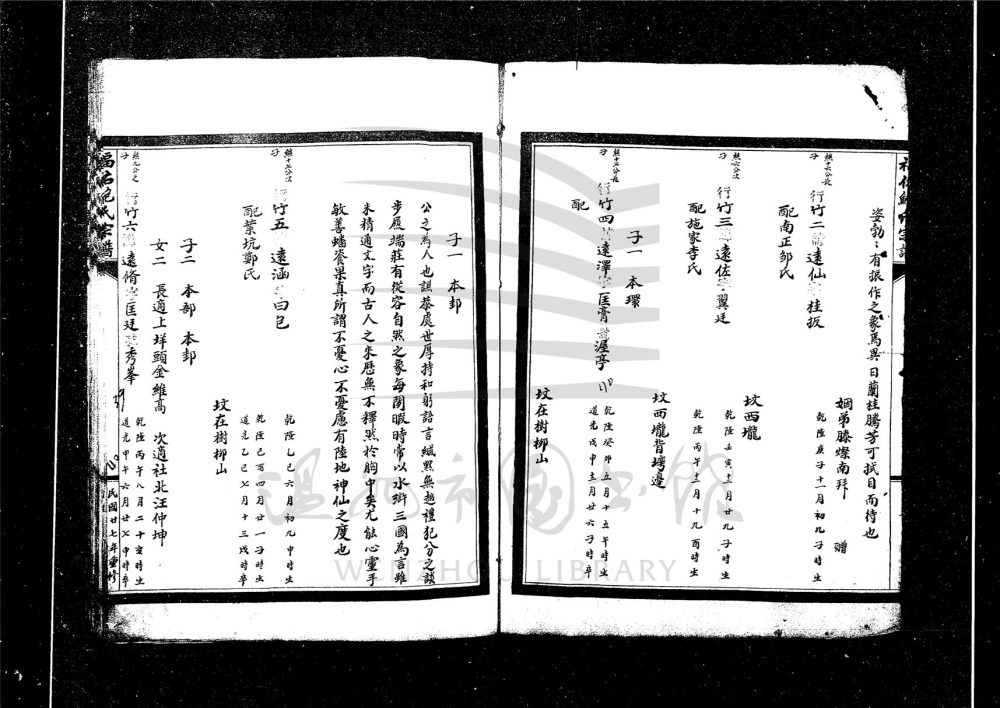 姿勃〻有振作之象焉異日蘭桂騰芳可拭目而待也
姻弟滕燦南拜 贈
行竹二諱遠仙字桂扳
乾隆庚子十一月初九子時生
配南正邹氏
坟西壠
行竹三諱遠佐字翼廷
乾隆壬寅十二月廿九子時生
乾隆丙午十二月十九酉時
配施家李氏
坟西壠背塆邊
子一 本環
行竹四諱遠澤字匡膏號渥亭
乾隆癸卯五月十五午時生
道光戊申十二月廿六子時卒
配
坟在樹柳山
子一 本邦
公之為人也謙恭處世厚持和躬語言緘默無越禮犯分之談
步履端莊有從容自然之象每閒暇時常以水滸三國為言雖
未精通文字而古人之來歷無不釋然於胸中矣尤能心靈手
敏善蟠養果真所謂不憂心不憂慮有陸地神仙之度也
行竹五諱遠涵字曰包
乾隆乙巳六月初九申時生
配葉坑鄭氏
乾隆己酉四月廿一子時生
道光乙巳七月十三戌時卒
坟在樹柳山
子二 本部 本邦
女二 長適上垟頭金維高 次適社北汪仲坤
行竹六諱遠脩字匡廷號秀峯
乾隆丙午八月二十亥時生
道光甲午六月廿七申時卒
民國廿七年重修
溫州市圖書館
WENZHOU LIBRARY